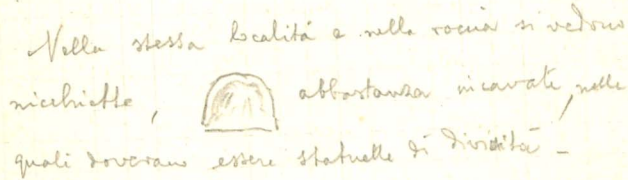 Nella stessa località e nella roccia si vedono
nicchiette, abbastanza incavate, nelle
quali dovevano essere statuelle di divinità –